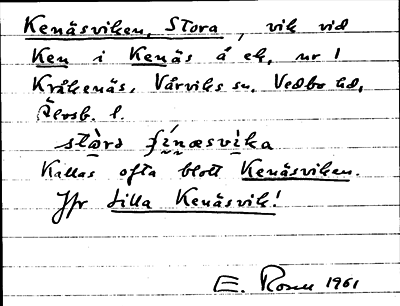 Kenäsviken, Stora, vik vid
Ken i Kenäs å ek. nr 1
Kråkenäs, Vårviks sn. Vedbo hd,
Älvsb. l.
Kallas ofta blott Kenäsviken.
Jfr Lilla Kenäsvik!
E. Rosen 1961